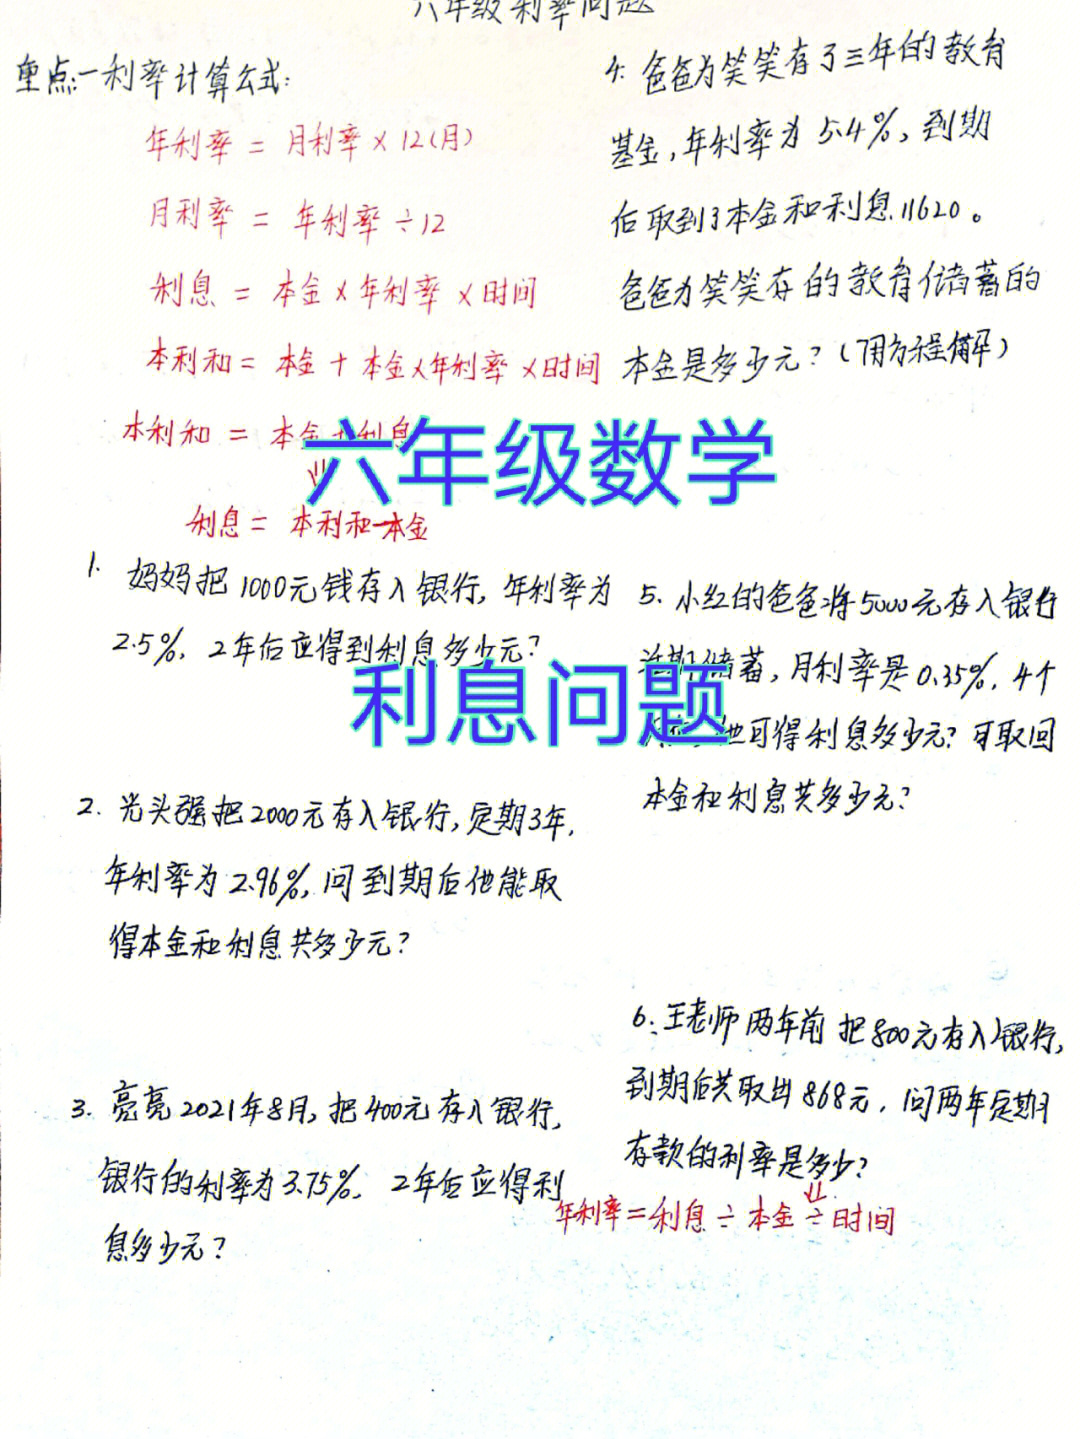 六年级利率问题
重点:一利率计算公式:
年利率 = 月利率 × 12(月)
月利率 = 年利率 ÷12
利息 = 本金 × 年利率 × 时间
本利和 = 本金 + 本金×年利率 ×时间
本利和 = 本金+利息
利息 = 本利和-本金
1. 妈妈把1000元钱存入银行, 年利率为
2.5%, 2年后应得到利息多少元?
2. 光头强把2000元存入银行,定期3年,
年利率为2.96%,问到期后他能取
得本金和利息共多少元?
3. 亮亮2021年8月,把400元存入银行,
银行的利率为3.75%, 2年后应得利
息多少元?
4. 爸爸为笑笑存了三年的教育
基金,年利率为5.4%,到期
后取到了本金和利息11620。
爸爸为笑笑存的教育储蓄的
本金是多少元?(用方程解)
六年级数学
利息问题
5. 小红的爸爸将5000元存入银行
储蓄,月利率是0.35%, 4个
他可得利息多少元? 可取回
本金和利息共多少元?
6. 王老师两年前把800元存入银行,
到期后共取出868元, 问两年定期
存款的利率是多少?
年利率=利息÷本金÷时间